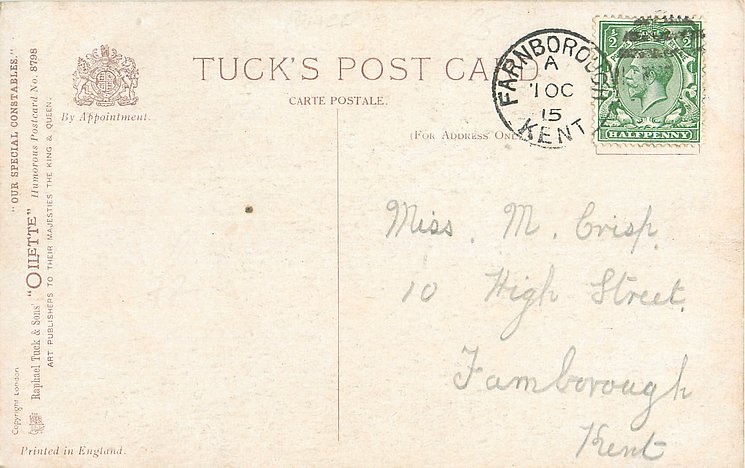 "OUR SPECIAL CONSTABLES."
Humorous Postcard No. 8798
Raphael Tuck & Sons' "OILETTE"
ART PUBLISHERS TO THEIR MAJESTIES THE KING & QUEEN.
Copyright London
By Appointment.
TUCK'S POST CARD
CARTE POSTALE.
(FOR ADDRESS ONLY
FARNBOROUGH
A
1 OC
15
KENT
½ ½
HALFPENNY
Miss. M. Crisp.
10 High Street.
Farnborough
Kent
Printed in England.